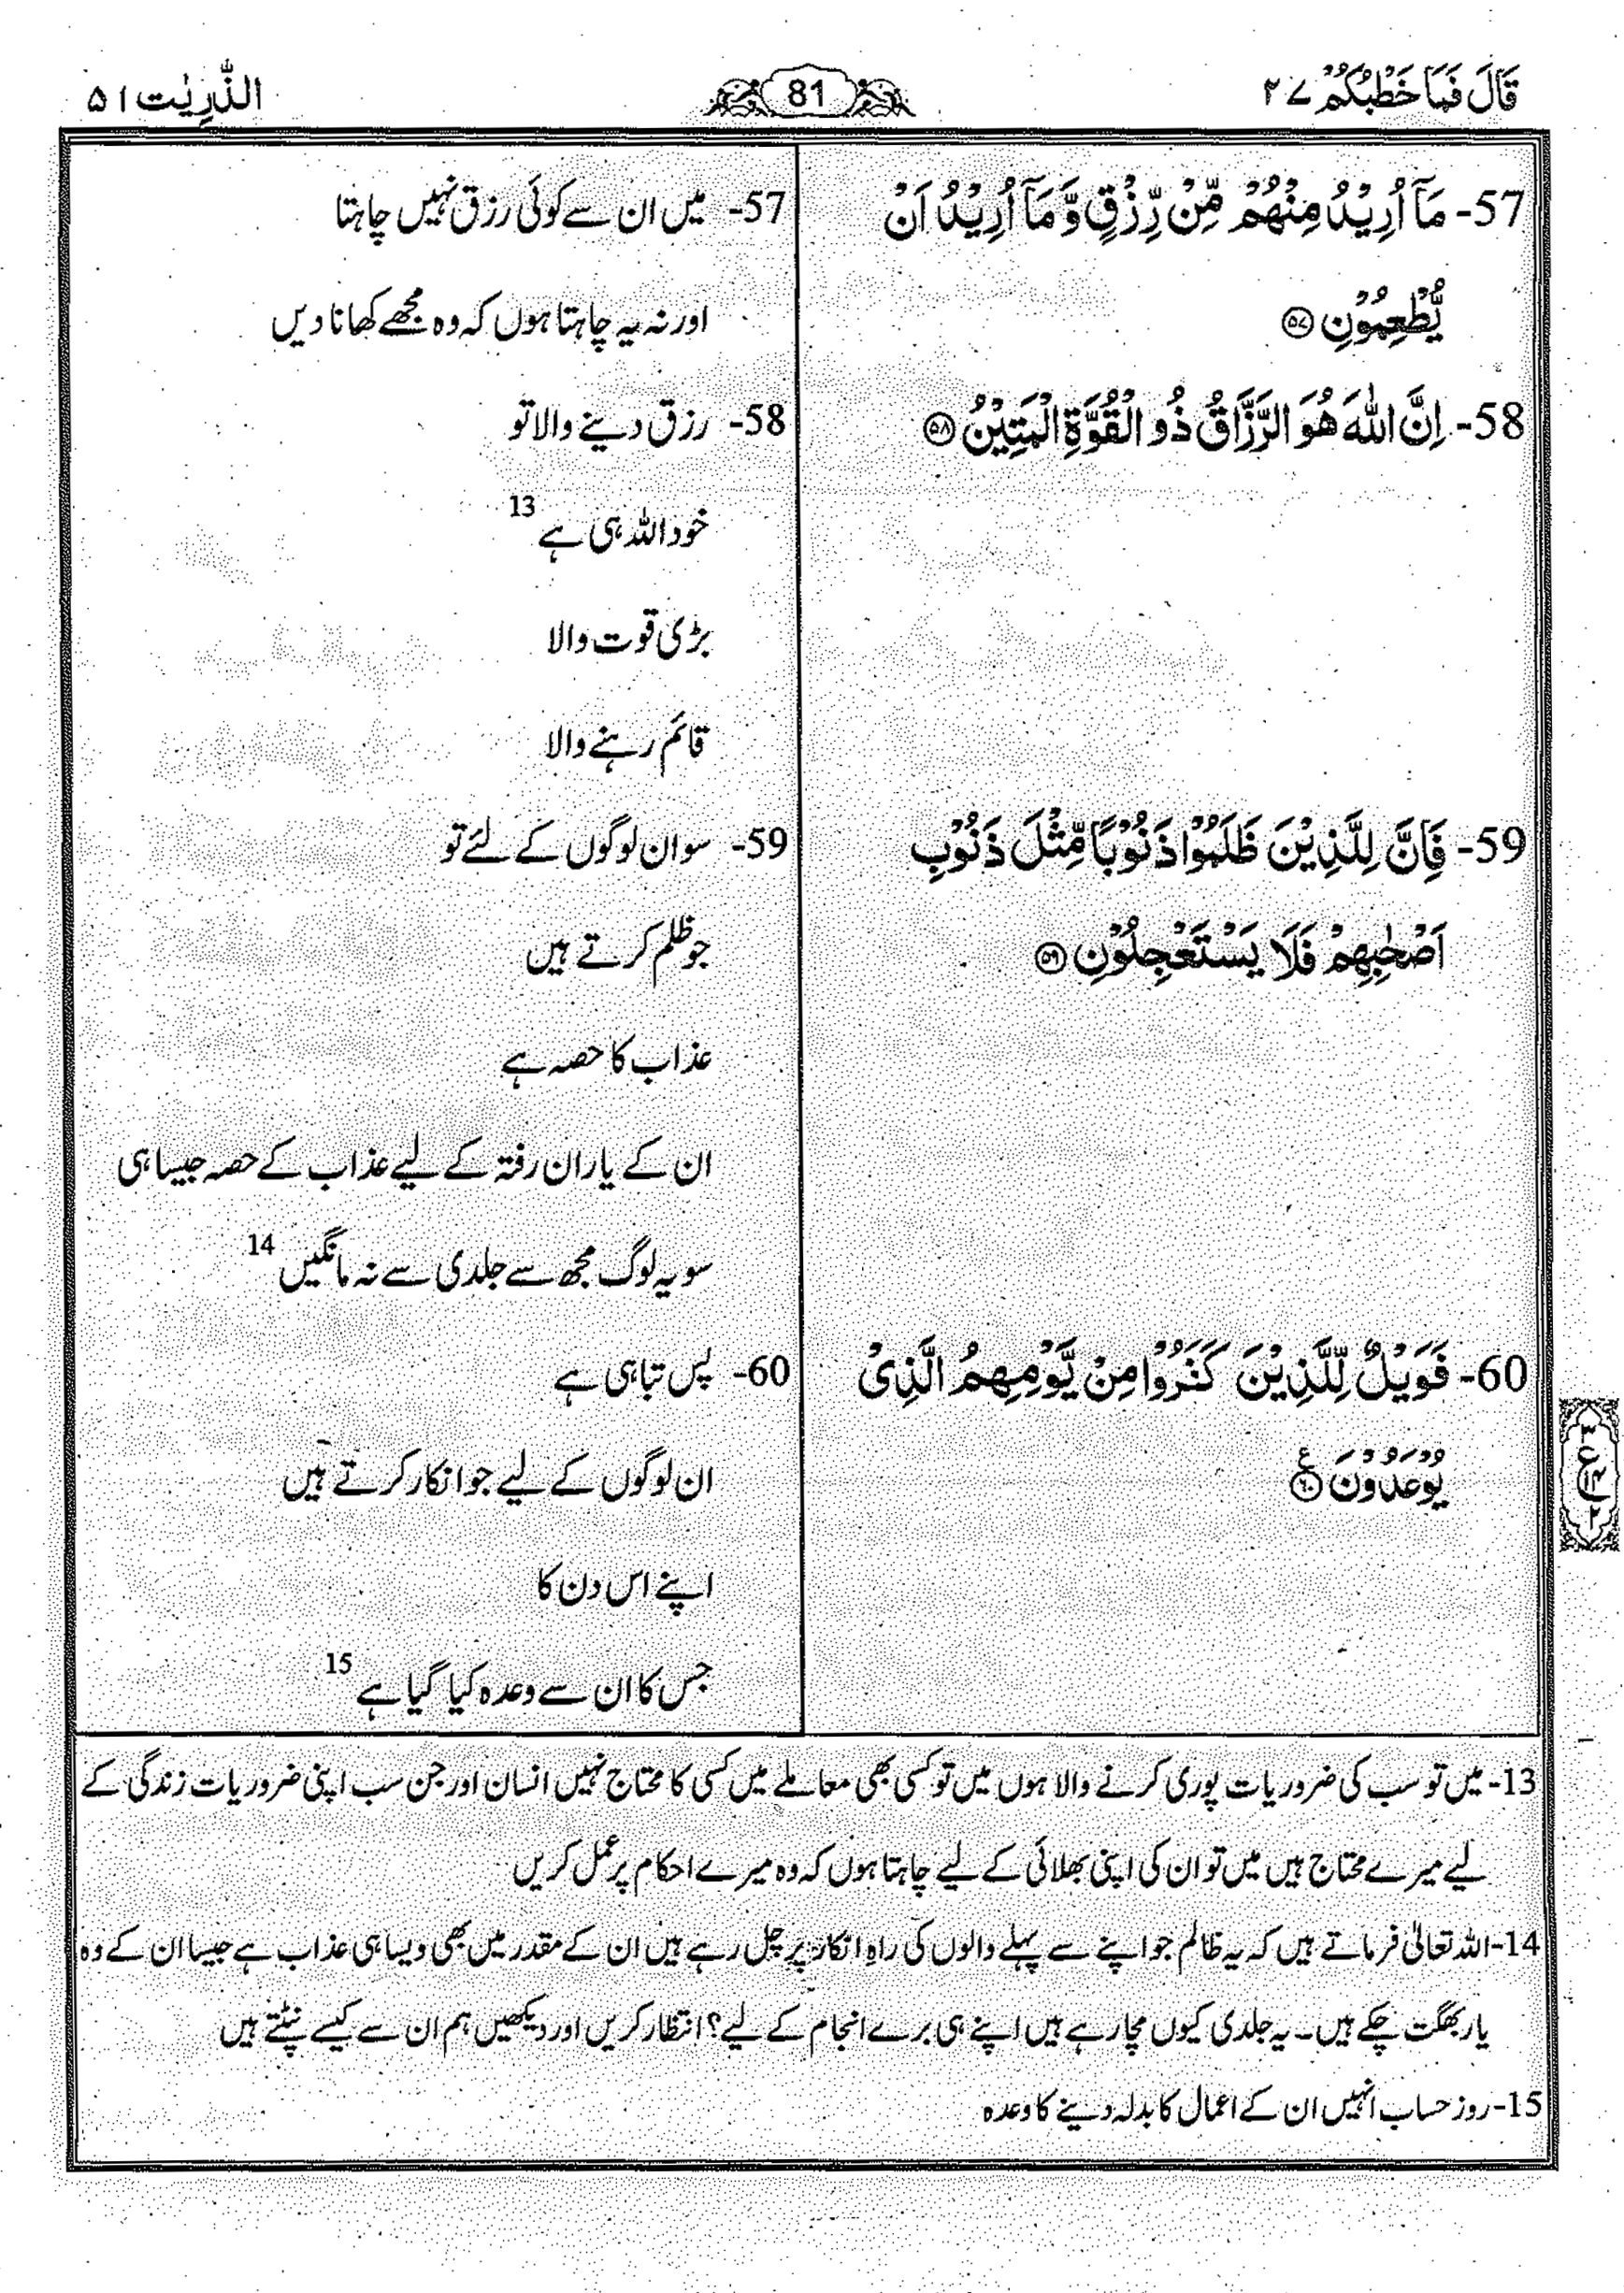 قَالَ فَمَا خَطْبُكُمْ ٢٧
81
الذّٰرِیٰت ۵۱
57- مَآ اُرِیْدُ مِنْهُمْ مِّنْ رِّزْقٍ وَّ مَآ اُرِیْدُ اَنْ
یُّطْعِمُوْنِ ۝۵۷
58- اِنَّ اللّٰهَ هُوَ الرَّزَّاقُ ذُو الْقُوَّةِ الْمَتِیْنُ ۝۵۸
59- فَاِنَّ لِلَّذِیْنَ ظَلَمُوْا ذَنُوْبًا مِّثْلَ ذَنُوْبِ
اَصْحٰبِهِمْ فَلَا یَسْتَعْجِلُوْنِ ۝۵۹
60- فَوَیْلٌ لِّلَّذِیْنَ كَفَرُوْا مِنْ یَّوْمِهِمُ الَّذِیْ
یُوْعَدُوْنَ ۝۶۰
57- میں ان سے کوئی رزق نہیں چاہتا
اور نہ یہ چاہتا ہوں کہ وہ مجھے کھانا دیں
58- رزق دینے والا تو
خود اللہ ہی ہے 13
بڑی قوت والا
قائم رہنے والا
59- سو ان لوگوں کے لئے تو
جو ظلم کرتے ہیں
عذاب کا حصہ ہے
ان کے یاران رفتہ کے لیے عذاب کے حصہ جیسا ہی
سو یہ لوگ مجھ سے جلدی سے نہ مانگیں 14
60- پس تباہی ہے
ان لوگوں کے لیے جو انکار کرتے ہیں
اپنے اس دن کا
جس کا ان سے وعدہ کیا گیا ہے 15
13- میں تو سب کی ضروریات پوری کرنے والا ہوں میں تو کسی بھی معاملے میں کسی کا محتاج نہیں انسان اور جن سب اپنی ضروریات زندگی کے
لیے میرے محتاج ہیں میں تو ان کی اپنی بھلائی کے لیے چاہتا ہوں کہ وہ میرے احکام پر عمل کریں
14- اللہ تعالیٰ فرماتے ہیں کہ یہ ظالم جو اپنے سے پہلے والوں کی راہِ انکار پر چل رہے ہیں ان کے مقدر میں بھی ویسا ہی عذاب ہے جیسا ان کے وہ
یار بھگت چکے ہیں۔ یہ جلدی کیوں مچا رہے ہیں اپنے ہی برے انجام کے لیے؟ انتظار کریں اور دیکھیں ہم ان سے کیسے نپٹتے ہیں
15- روز حساب انہیں ان کے اعمال کا بدلہ دینے کا وعدہ